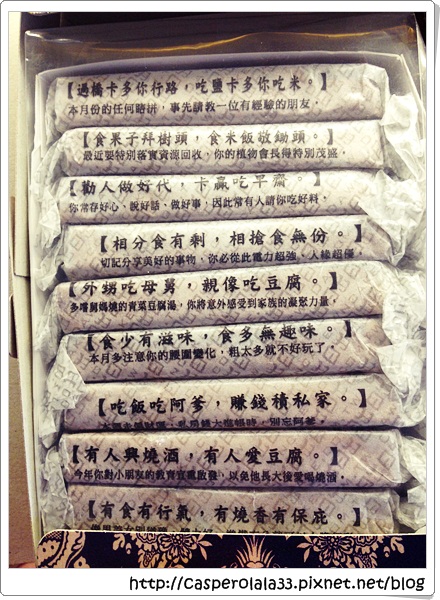 【過橋卡多你行路，吃鹽卡多你吃米。】
本月份的任何賭拼，事先請教一位有經驗的朋友。
【食果子拜樹頭，食米飯敬鋤頭。】
最近要特別落實資源回收，你的植物會長得特別茂盛。
【勸人做好代，卡贏吃早齋。】
你常存好心、說好話、做好事，因此常有人請你吃好料。
【相分食有剩，相搶食無份。】
切記分享美好的事物，你必從此電力超強、人緣超優。
【外甥吃母舅，親像吃豆腐。】
多嚐舅媽燒的青菜豆腐湯，你將意外感受到家族的凝聚力量。
【食少有滋味，食多無趣味。】
本月多注意你的腰圍變化，粗太多就不好玩了。
【吃飯吃阿爹，賺錢積私家。】
別忘阿爹。
【有人興燒酒，有人愛豆腐。】
今年你對小朋友的教育宜電啟發，以免他長大後愛喝燒酒。
【有食有行氣，有燒香有保庇。】
http://casperolala33.pixnet.net/blog